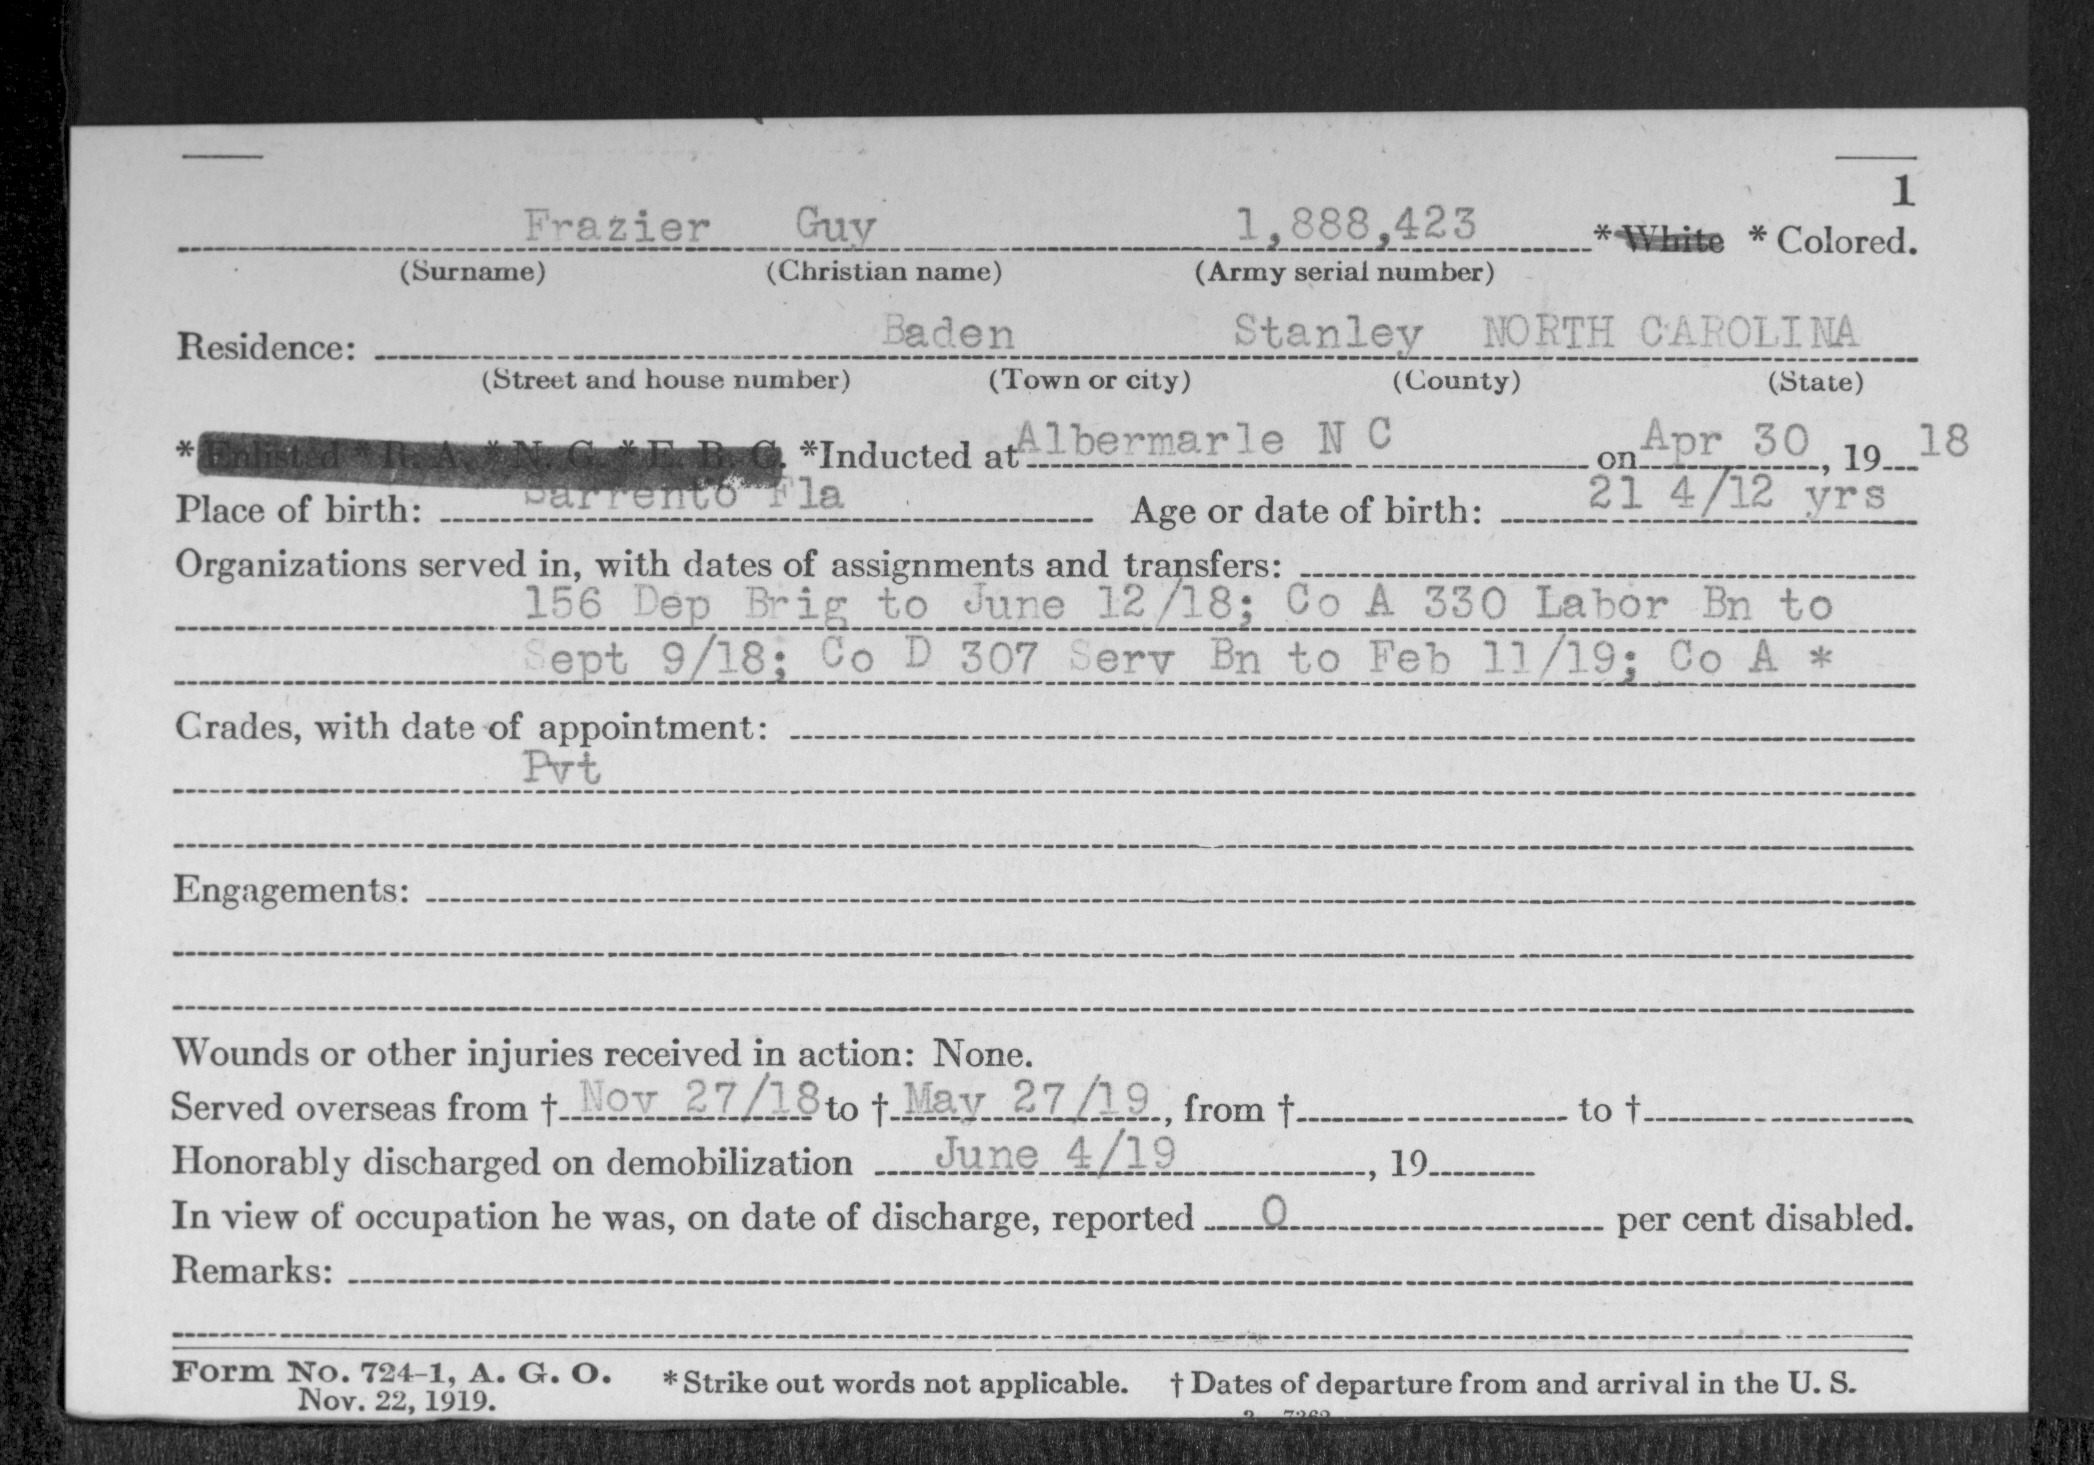 1
Frazier Guy 1,888,423 * White * Colored.
(Surname) (Christian name) (Army serial number)
Residence: Baden Stanley NORTH CAROLINA
(Street and house number) (Town or city) (County) (State)
* Enlisted * R. A. * N. G. * E. R. C. * Inducted at Albermarle N C on Apr 30, 19 18
Place of birth: Sarrento Fla Age or date of birth: 21 4/12 yrs
Organizations served in, with dates of assignments and transfers:
156 Dep Brig to June 12/18; Co A 330 Labor Bn to
Sept 9/18; Co D 307 Serv Bn to Feb 11/19; Co A *
Grades, with date of appointment:
Pvt
Engagements:
Wounds or other injuries received in action: None.
Served overseas from † Nov 27/18 to † May 27/19, from † to †
Honorably discharged on demobilization June 4/19, 19
In view of occupation he was, on date of discharge, reported 0 per cent disabled.
Remarks:
Form No. 724-1, A. G. O. * Strike out words not applicable. † Dates of departure from and arrival in the U. S.
Nov. 22, 1919.